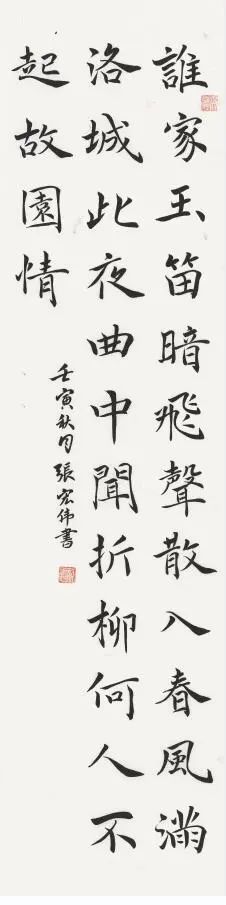 誰家玉笛暗飛聲散入春風滿
洛城此夜曲中聞折柳何人不
起故園情
壬寅秋月張宏伟書